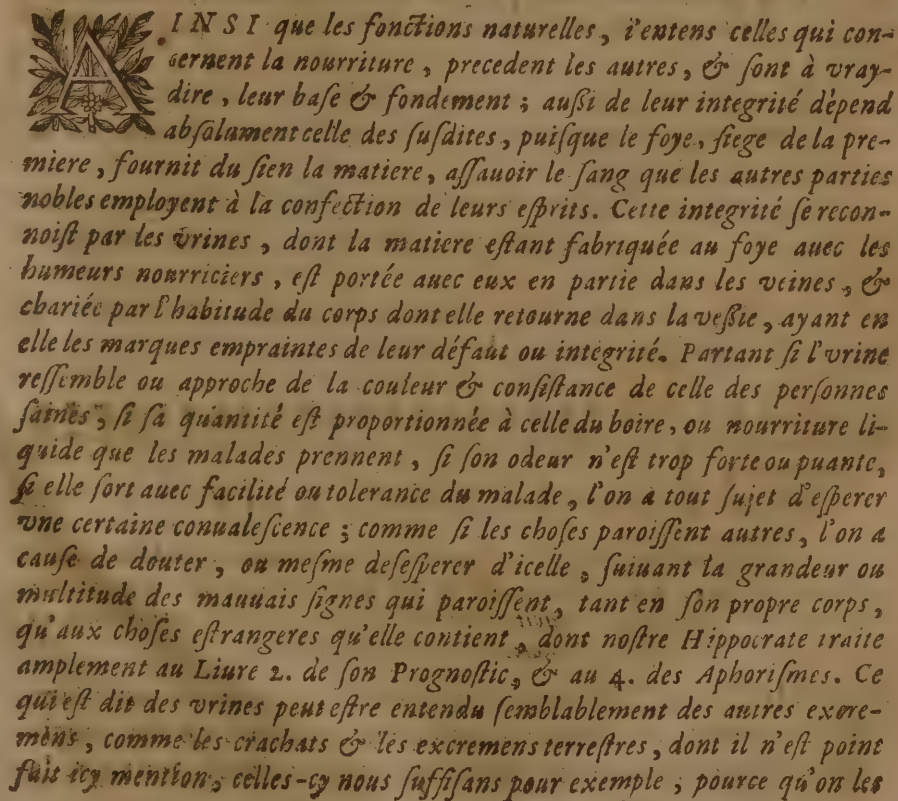 AINSI que les fonctions naturelles, i'entens celles qui con-
cernent la nourriture, precedent les autres, & ſont à vray-
dire, leur baſe & fondement ; auſsi de leur integrité dépend
abſolument celle des ſuſdites, puiſque le foye, ſiege de la pre-
miere, fournit du ſien la matiere, aſſauoir le ſang que les autres parties
nobles employent à la confection de leurs eſprits. Cette integrité ſe recon-
noiſt par les vrines, dont la matiere eſtant fabriquée au foye auec les
humeurs nourriciers, eſt portée auec eux en partie dans les veines, &
chariée par l'habitude du corps dont elle retourne dans la veſſie, ayant en
elle les marques empraintes de leur défaut ou integrité. Partant ſi l'vrine
reſſemble ou approche de la couleur & conſiſtance de celle des perſonnes
ſaines, ſi ſa quantité eſt proportionnée à celle du boire, ou nourriture li-
quide que les malades prennent, ſi ſon odeur n'eſt trop forte ou puante,
ſi elle ſort auec facilité ou tolerance du malade, l'on a tout ſujet d'eſperer
vne certaine conualeſcence ; comme ſi les choſes paroiſſent autres, l'on a
cauſe de douter, ou meſme deſeſperer d'icelle, ſuiuant la grandeur ou
multitude des mauuais ſignes qui paroiſſent, tant en ſon propre corps,
qu'aux choſes eſtrangeres qu'elle contient, dont noſtre Hippocrate traite
amplement au Liure 2. de ſon Prognoſtic, & au 4. des Aphoriſmes. Ce
qui eſt dit des vrines peut eſtre entendu ſemblablement des autres excre-
mens, comme les crachats & les excremens terreſtres, dont il n'eſt point
fait icy mention, celles-cy nous ſuffiſans pour exemple ; pource qu'on les